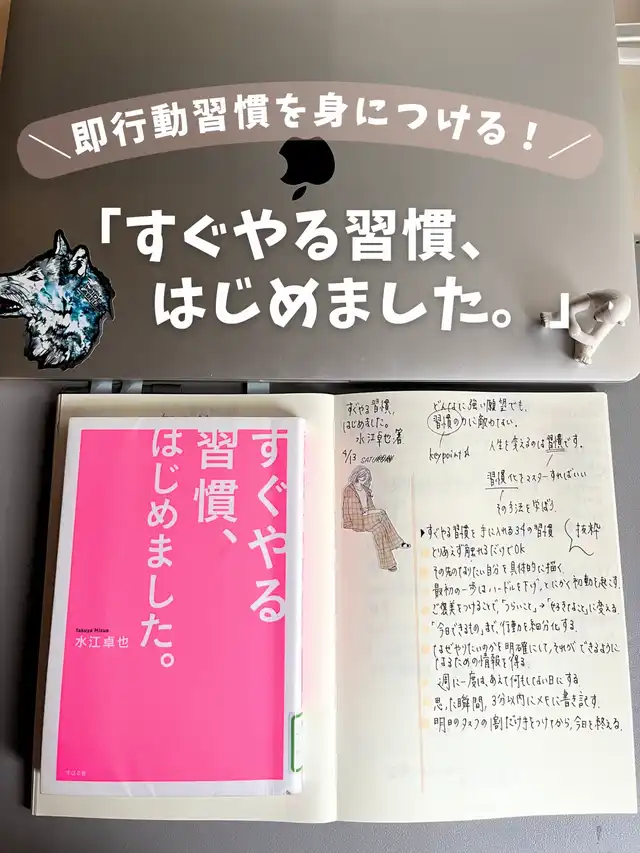 ＼即行動習慣を身につける！／
「すぐやる習慣、
はじめました。」
すぐやる
習慣、
はじめました。
Takuya Mizue
水江卓也
すばる舎
すぐやる習慣、
はじめました。
水江卓也著
4/13 SATURDAY
どんなに強い願望でも、
習慣の力に敵わない。
keypoint
人生を変えるのは習慣です。
習慣化をマスターすればいい
その方法を学ぼう
▶すぐやる習慣を手に入れる34の習慣
抜粋
とりあえず触れるだけでOK
その先のなりたい自分を具体的に描く
最初の一歩はハードルを下げ、とにかく初動を起こす。
ご褒美をつけることで、「つらいこと」→「やるきなること」に変える
「今日できるもの」まで、行動を細分化する。
なぜやりたいのかを明確にして、それができるように
なるための情報を得る。
週に一度は、あえて何もしない日にする
思った瞬間、3分以内にメモに書き記す。
明日のタスクの1割だけ手をつけてから、今日を終える。